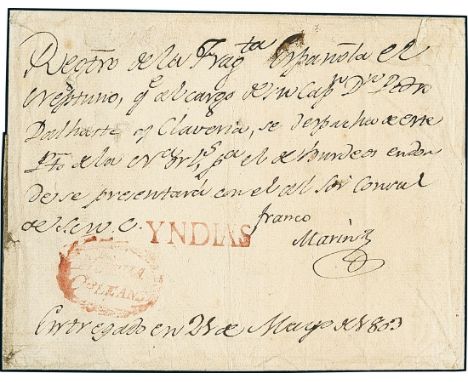 Regtro de la Fragta Española el
Neptuno, qe al cargo de su Capn Dn Pedro
Dalhaste y Claveria, se despacha de este
Pto de la Na Orls pa el de Burdeos en don
de se presentará con el al Sor Consul
de S. M. C.
YNDIAS
franco
Marin
ORLEANS
Entregado en 21 de Mayo de 1803